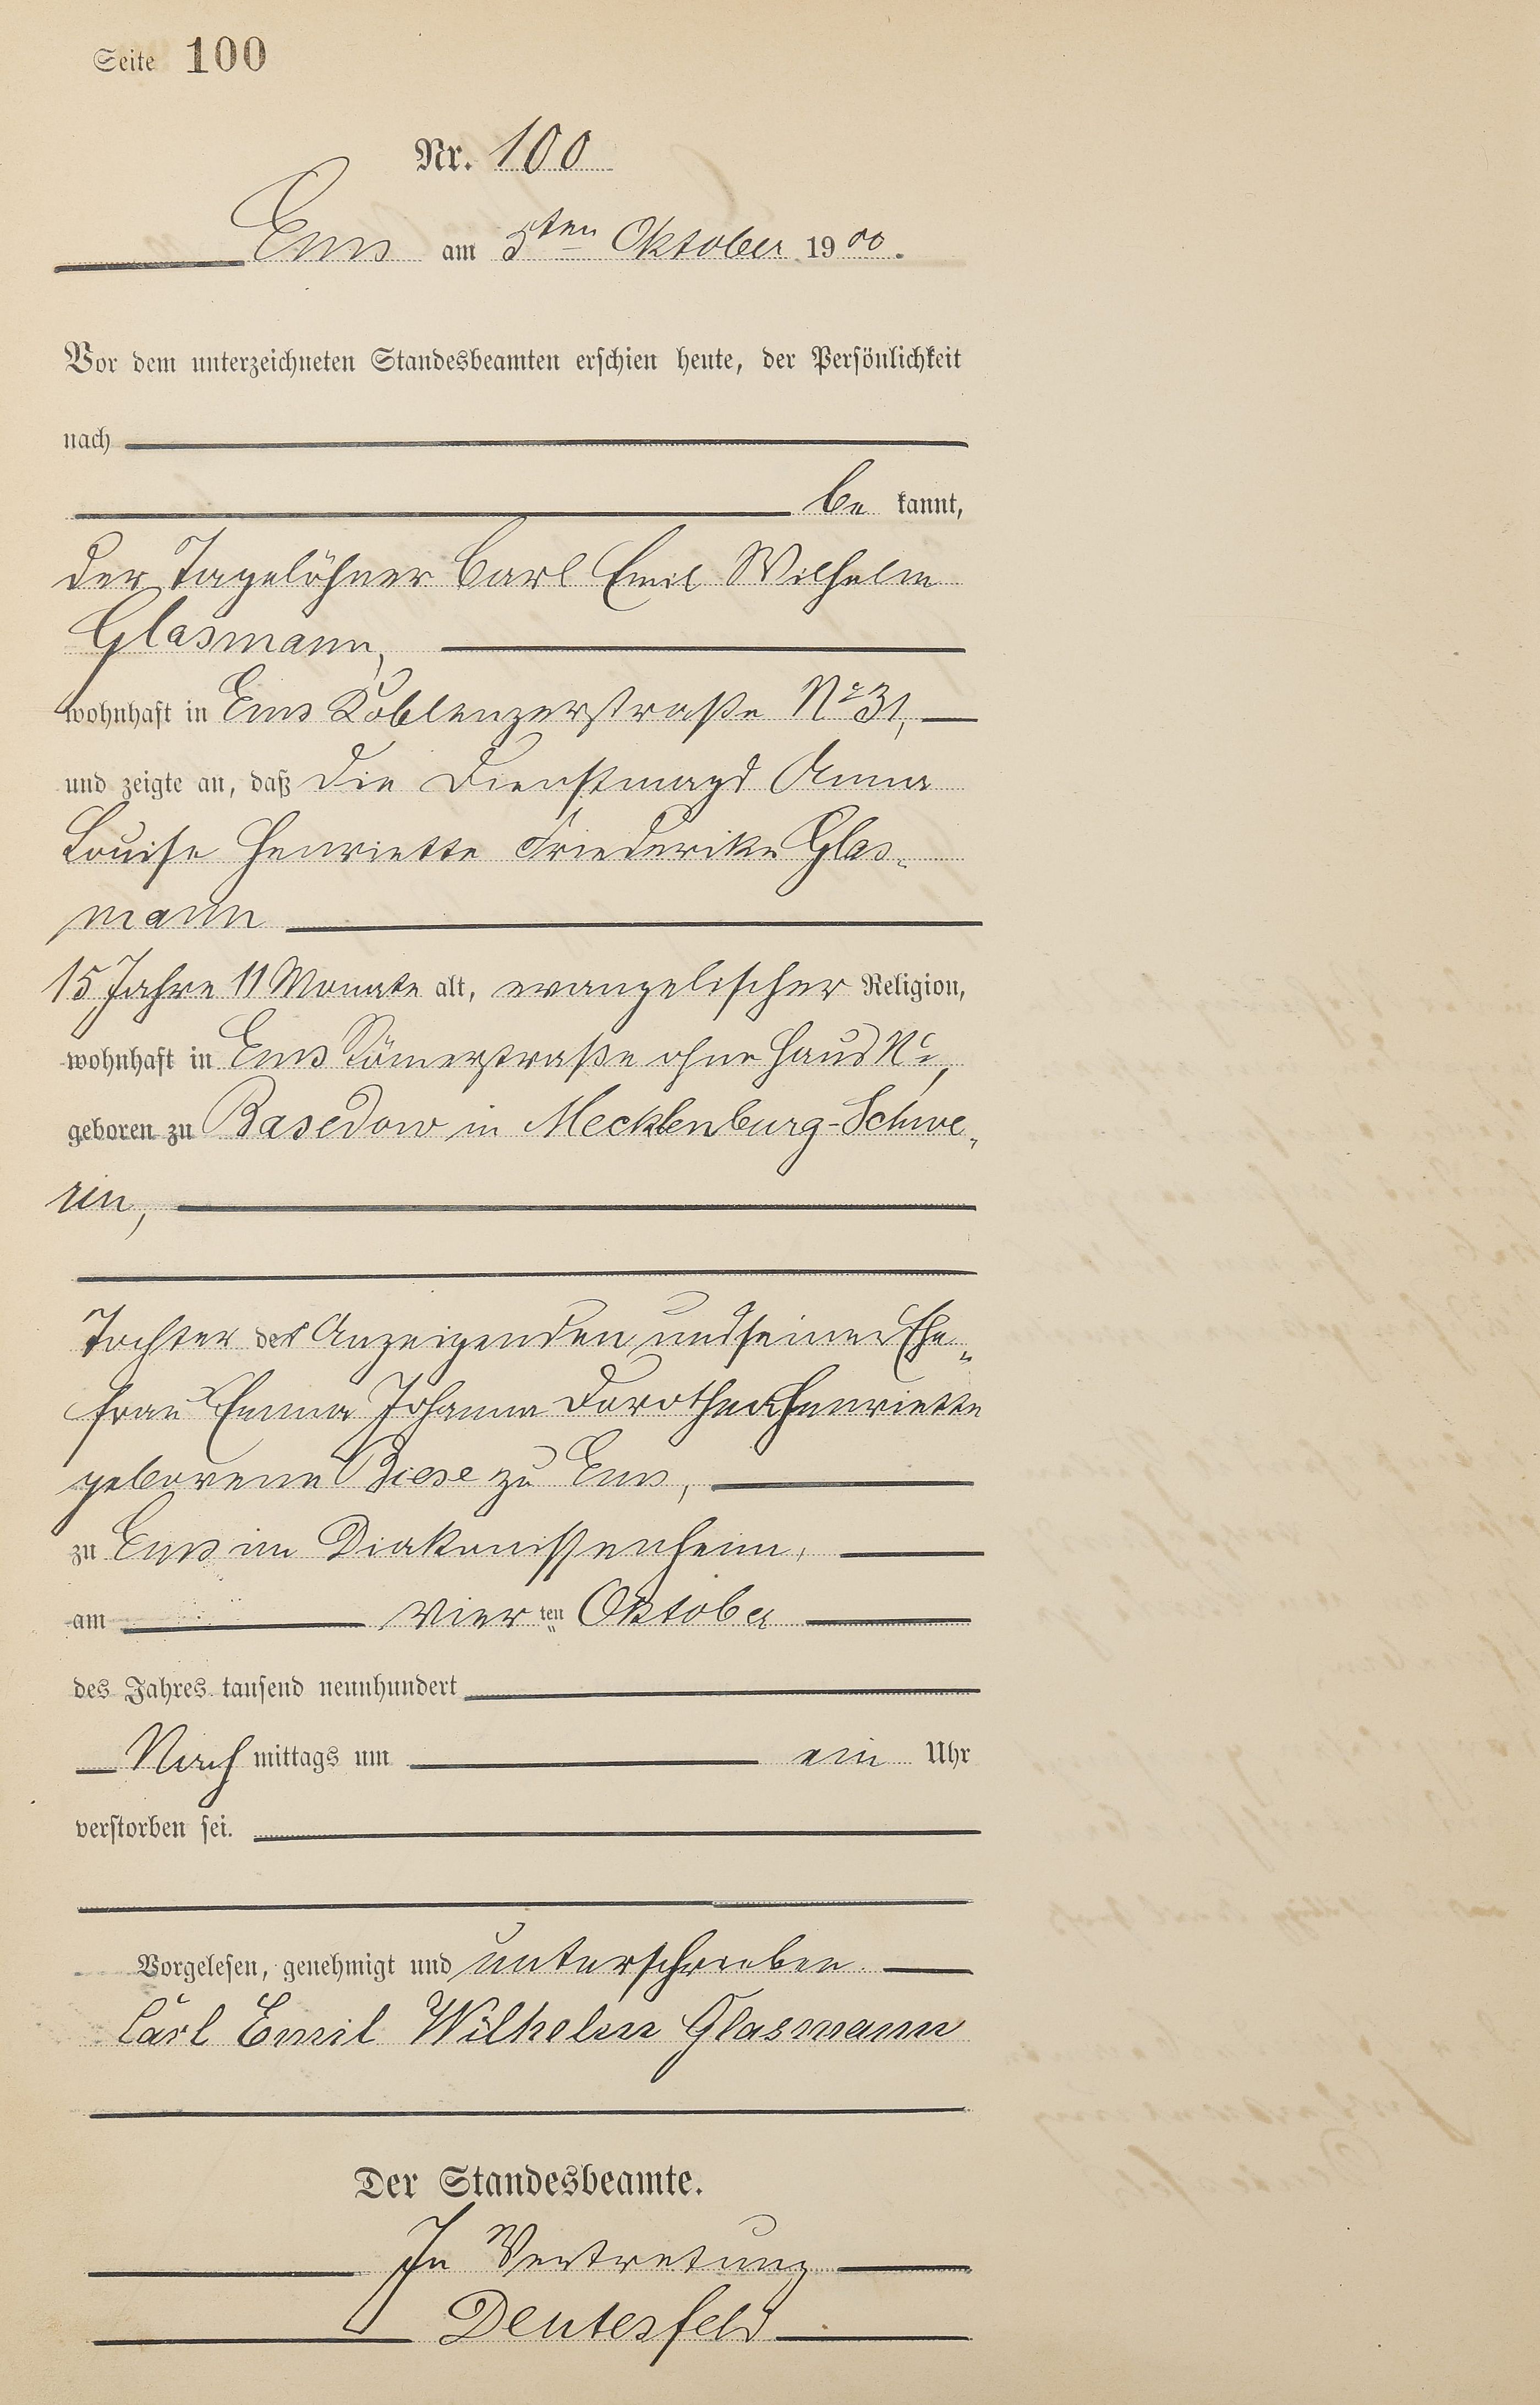 Seite 100
Nr. 100
Ems am 5ten Oktober 1900.
Vor dem unterzeichneten Standesbeamten erschien heute, der Persönlichkeit
nach
be kannt,
der Tagelöhner Carl Emil Wilhelm
Glasmann,
wohnhaft in Ems Koblenzerstraße No 31,
und zeigte an, daß die Dienstmagd Anna
Louise Henriette Friederike Glas-
mann
15 Jahre 11 Monate alt, evangelischer Religion,
wohnhaft in Ems Römerstraße ohne Haus No,
geboren zu Basedow in Mecklenburg-Schwe-
rin,
Tochter des Anzeigenden und seiner Ehe-
frau Emma Johanna Dorothea Henriette
geborene Biese zu Ems,
zu Ems im Diakonissenheim,
am vier ten Oktober
des Jahres tausend neunhundert
Nach mittags um ein Uhr
verstorben sei.
Vorgelesen, genehmigt und unterschrieben.
Carl Emil Wilhelm Glasmann
Der Standesbeamte.
In Vertretung
Deutesfeld